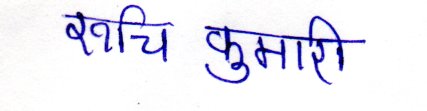 रुचि कुमारी